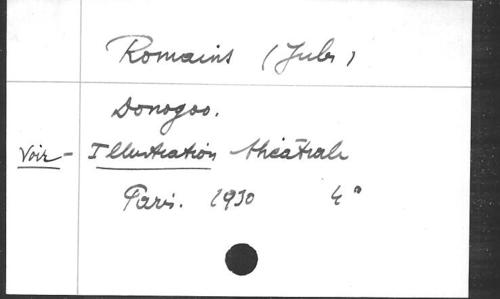 Romains (Jules)
Donogoo.
Voir - Illustration théâtrale
Paris. 1930 4°